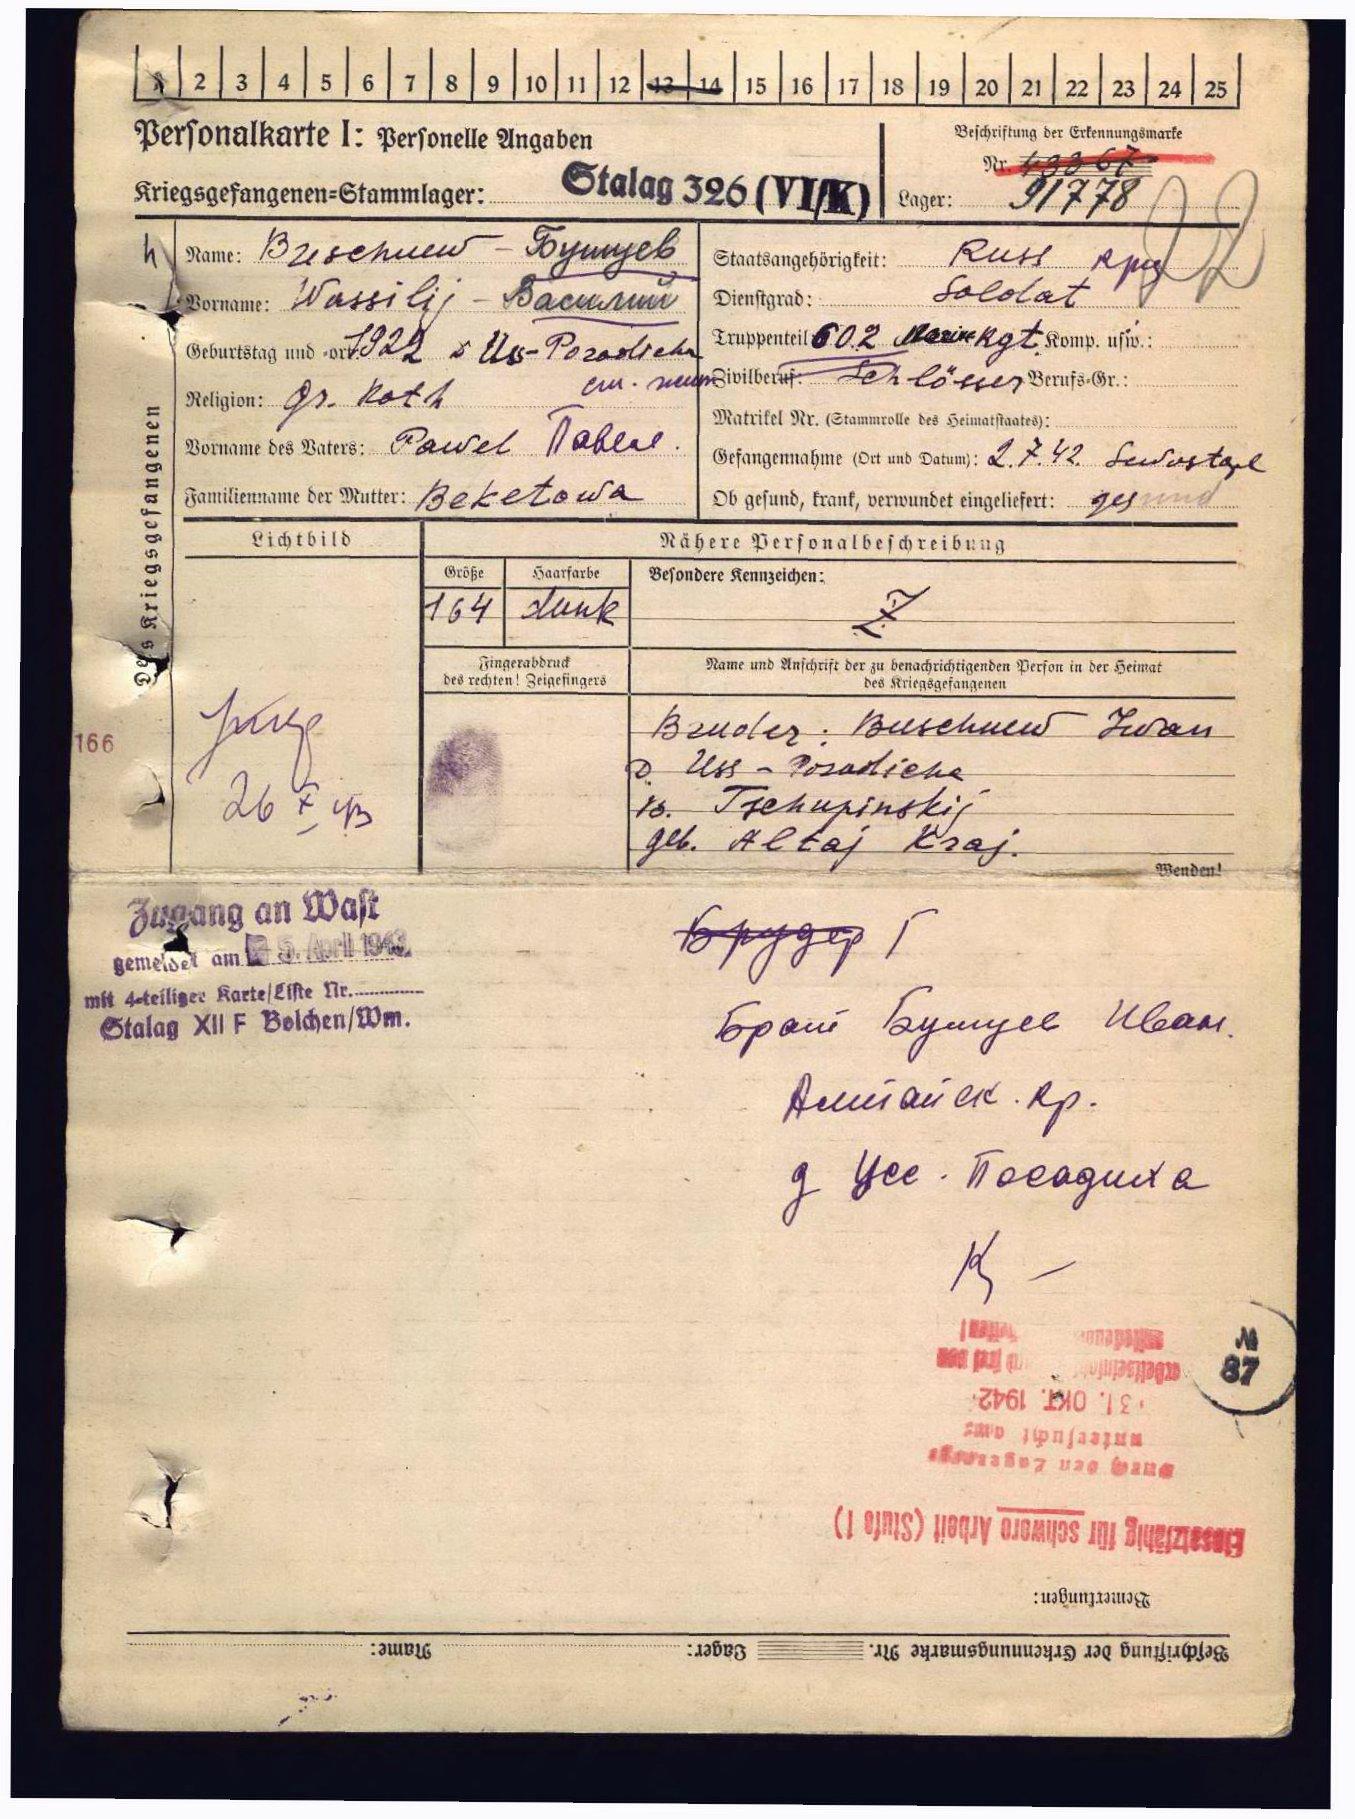 1 2 3 4 5 6 7 8 9 10 11 12 13 14 15 16 17 18 19 20 21 22 23 24 25
Personalkarte I: Personelle Angaben
Kriegsgefangenen=Stammlager: Stalag 326 (VI/K)
Beschriftung der Erkennungsmarke
Nr. 43367
Lager: 91778
Des Kriegsgefangenen
Name: Buschuew - Бушуев
Vorname: Wassilij - Василий
Geburtstag und -ort 1922 Us-Posadicha
Religion: gr. Kath
Vorname des Vaters: Pawel Павел.
Familienname der Mutter: Beketowa
Staatsangehörigkeit: Russ
Dienstgrad: Soldat
Truppenteil 602 Rgt. Komp. usw.:
Zivilberuf: Schlösser Berufs-Gr.:
Matrikel Nr. (Stammrolle des Heimatstaates):
Gefangennahme (Ort und Datum): 2.7.42. Sewostopl
Ob gesund, krank, verwundet eingeliefert: gesund
Lichtbild
Nähere Personalbeschreibung
Größe
Haarfarbe
Besondere Kennzeichen:
164
dunk
Fingerabdruck
des rechten! Zeigefingers
Name und Anschrift der zu benachrichtigenden Person in der Heimat
des Kriegsgefangenen
Bruder: Buschuew Iwan
D. Uss-Posadicha
Tschupinskij
geb. Altaj Kraj.
Wenden!
166
26 X 43
Zugang an Wast
gemeldet am 5. April 1943
mit 4-teiliger Karte/Liste Nr.
Stalag XII F Bolchen/Wm.
Брудер Г
Брат Бушуев Иван.
Алтайск. кр.
д Усс. Посадиха
№
87
31. OKT. 1942
untersucht am:
Durch den Lagerarzt
Einsatzfähig für schwere Arbeit (Stufe I)
Bemerkungen:
Beschriftung der Erkennungsmarke Nr. Lager: Name: